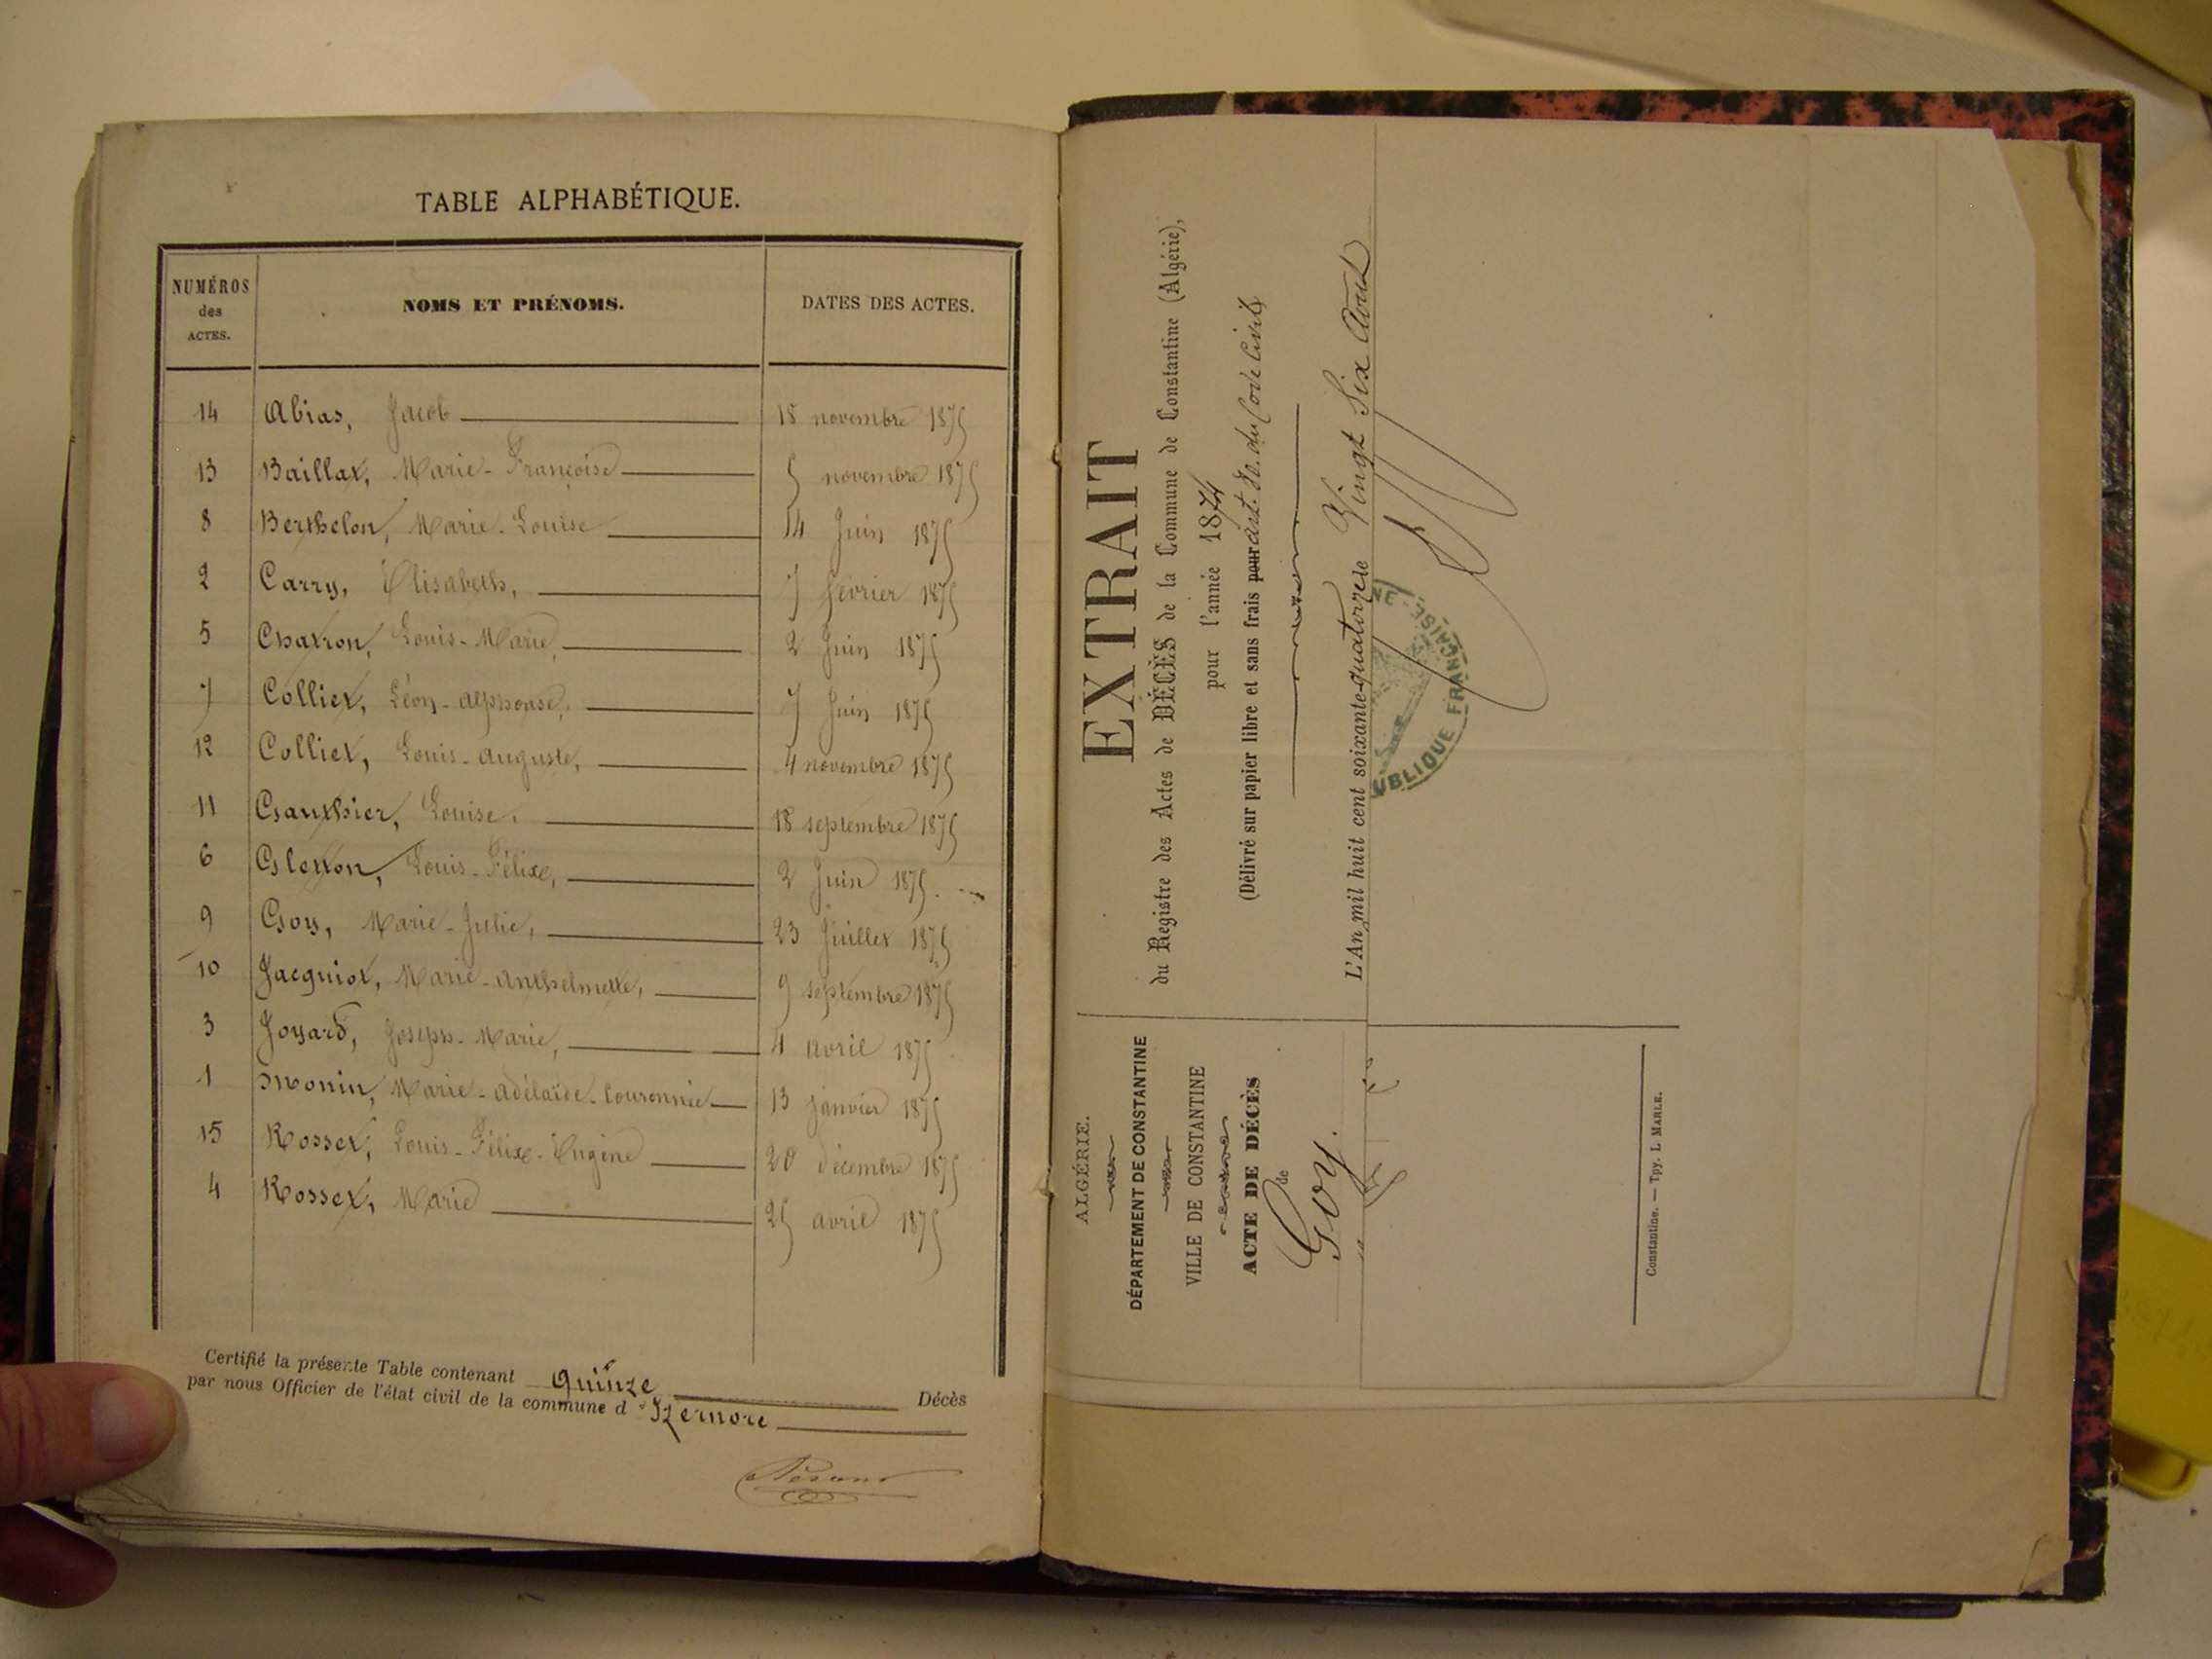 TABLE ALPHABÉTIQUE.
NUMÉROS des ACTES. NOMS ET PRÉNOMS. DATES DES ACTES.
14 Abias, Jacob 18 novembre 1875
13 Baillat, Marie-Françoise 5 novembre 1875
8 Berthelon, Marie-Louise 14 Juin 1875
2 Carry, Elisabeth, 7 février 1875
5 Chatron, Louis-Marie, 2 Juin 1875
7 Colliet, Léon-alphonse, 7 Juin 1875
12 Colliet, Louis-auguste, 4 novembre 1875
11 Gauthier, Louise, 18 septembre 1875
6 Gletton, Louis-Félix, 2 Juin 1875.
9 Goy, Marie-Julie, 23 Juillet 1875
10 Jacquiot, Marie-anthelmette, 9 septembre 1875
3 Joyard, Joseph-Marie, 4 avril 1875
1 Monin, Marie-adélaïde-Couronnée 13 janvier 1875
15 Rosset, Louis-Félix-Eugène 20 décembre 1875
4 Rosset, Marie 25 avril 1875
Certifié la présente Table contenant quinze Décès
par nous Officier de l'état civil de la commune d'Izernore
ALGÉRIE.
DÉPARTEMENT DE CONSTANTINE
VILLE DE CONSTANTINE
ACTE DE DÉCÈS
de
Goy.
Constantine. — Tpy. L MARLE.
EXTRAIT
du Registre des Actes de DÉCÈS de la Commune de Constantine (Algérie),
pour l'année 1874
(Délivré sur papier libre et sans frais pour art. 80. du Code Civil)
L'An mil huit cent soixante-quatorze le Vingt Six Aout
UBLIQUE FRANÇAISE